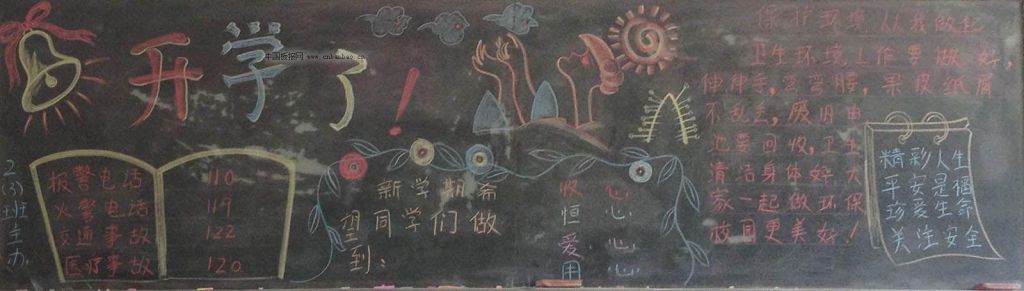 开学了！
中国板报网 www.cnbanbao.cn
2(3)班主办
报警电话 110
火警电话 119
交通事故 122
医疗事故 120
新学期需
想同学们做
到：
收心
恒心
爱心
用心
保护环境从我做起
卫生环境工作要做好，
伸伸手，弯弯腰，果皮纸屑
不乱丢，废旧电
池要回收，卫生
清洁身体好，大
家一起做环保
校园更美好！
精彩人生
平安是福
珍爱生命
关注安全